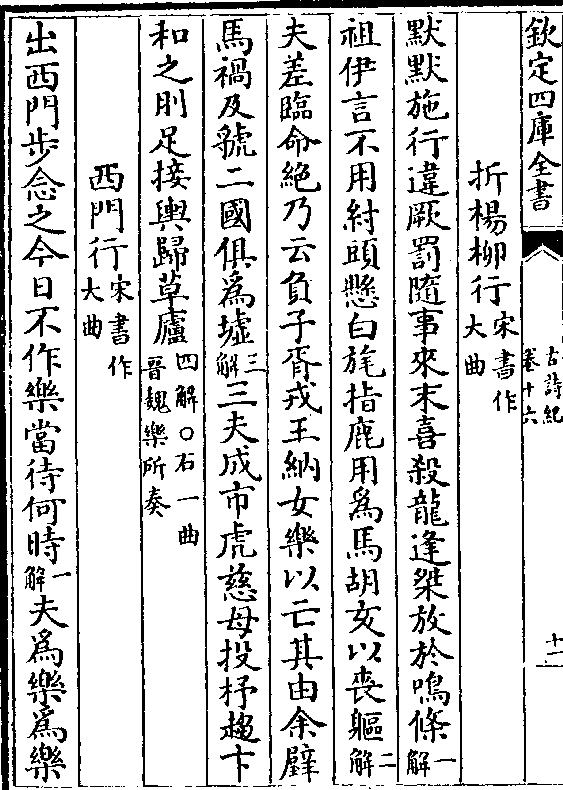 欽定四庫全書
古詩紀
卷十六
十一
折楊柳行宋書作大曲
默默施行違厥罰隨事來末喜殺龍逢桀放於鳴條一解
祖伊言不用紂頭懸白旄指鹿用爲馬胡亥以喪軀二解
夫差臨命絕乃云負子胥戎王納女樂以亡其由余璧
馬禍及虢二國俱爲墟三解三夫成市虎慈母投杼趨卞
和之刖足接輿歸草廬四解○右一曲晉魏樂所奏
西門行宋書作大曲
出西門步念之今日不作樂當待何時一解夫爲樂爲樂